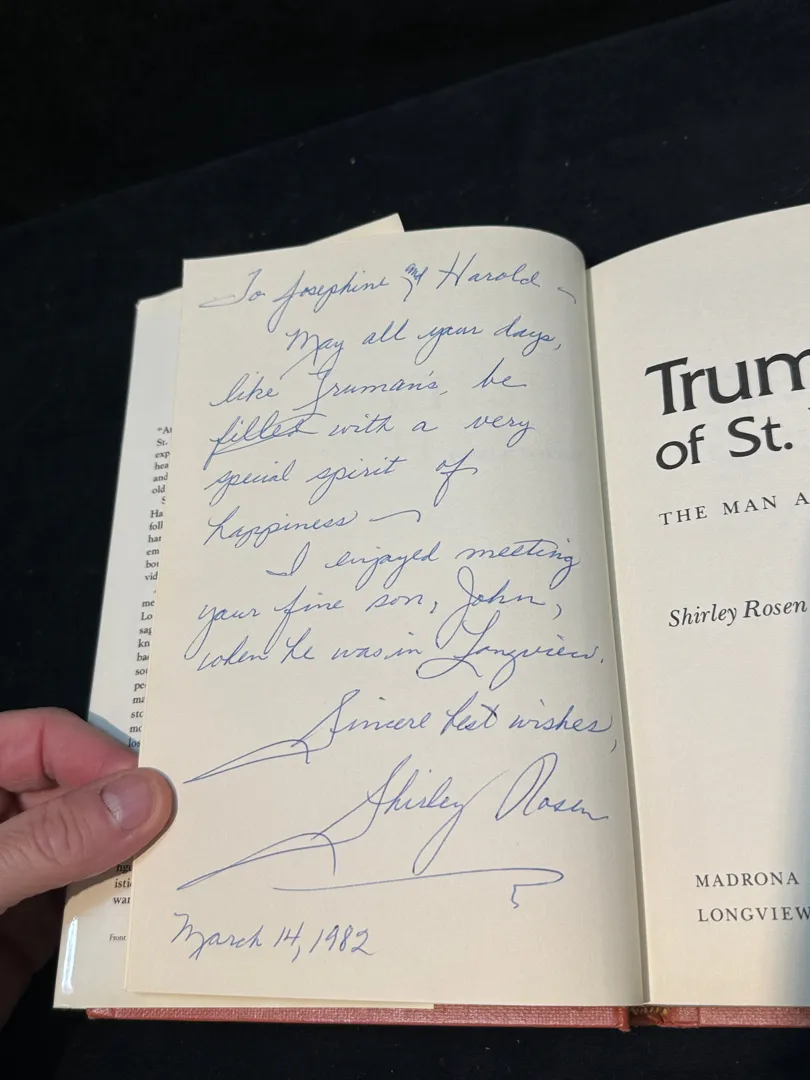 To Josephine and Harold —
May all your days,
like Truman's, be
filled with a very
special spirit of
happiness —
I enjoyed meeting
your fine son, John,
when he was in Longview.
Sincere best wishes,
Shirley Rosen
March 14, 1982
"At
St.
exp
hea
and
old
S
Ha
foll
har
em
bo
vid
me
Lo
sag
kn
ba
so
pe
ma
sto
mo
los
nge
isti
wa
Front
Trum
of St.
THE MAN A
Shirley Rosen
MADRONA
LONGVIEW